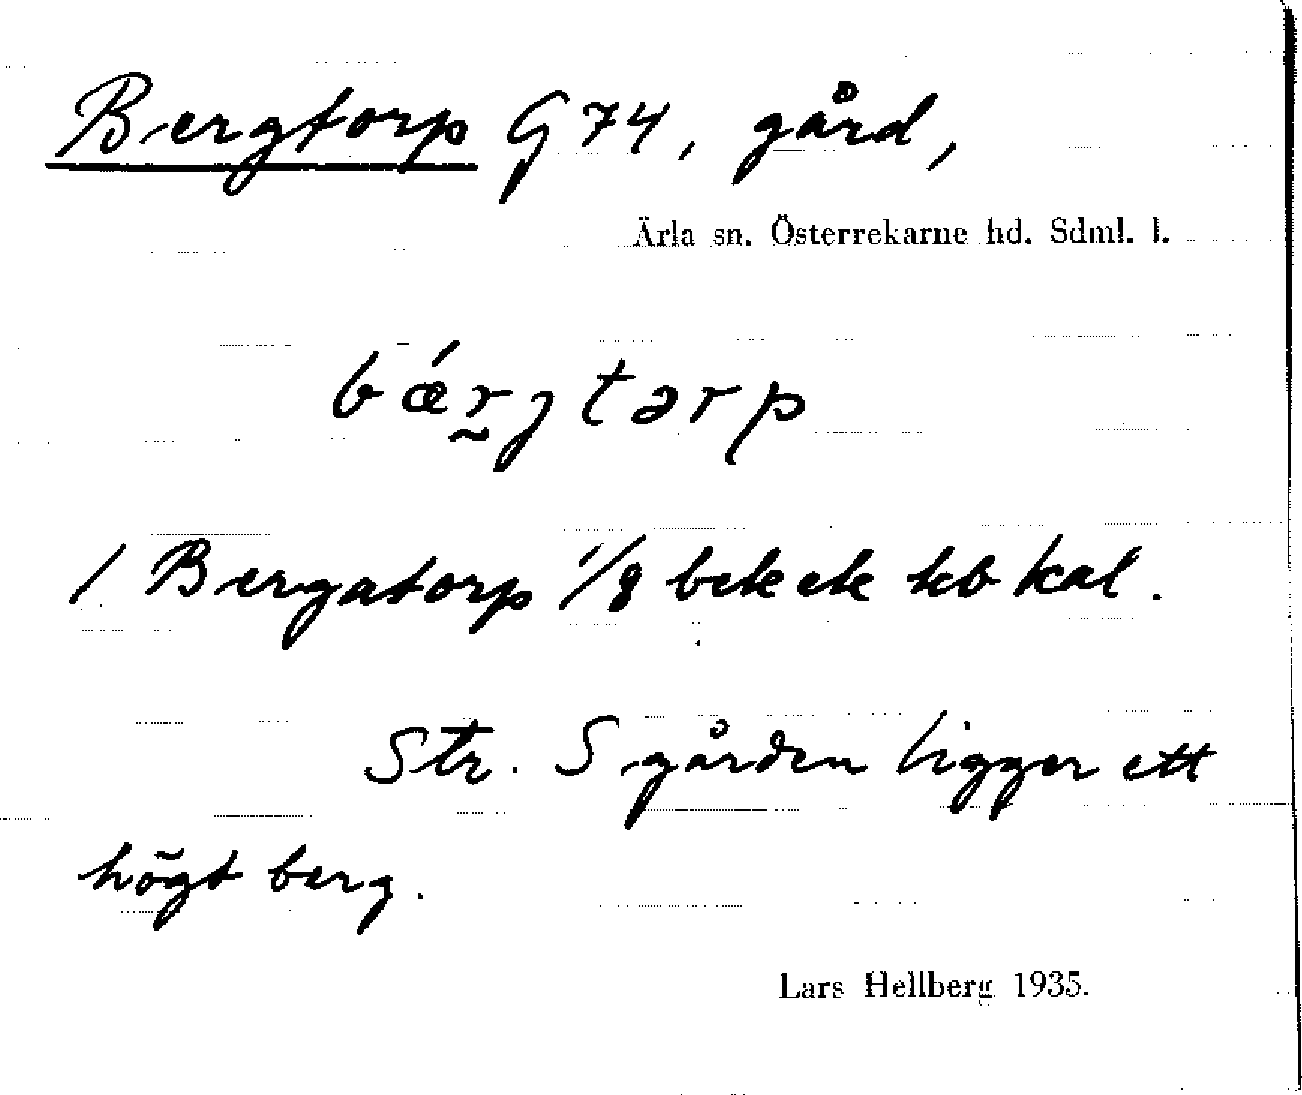 Bergtorp G 74, gård,
Ärla sn. Österrekarne hd. Sdml. l.
bǽr̰jtərp
1 Bergatorp 1/8 bek ek kb kal.
Str. S gården ligger ett
högt berg.
Lars Hellberg 1935.